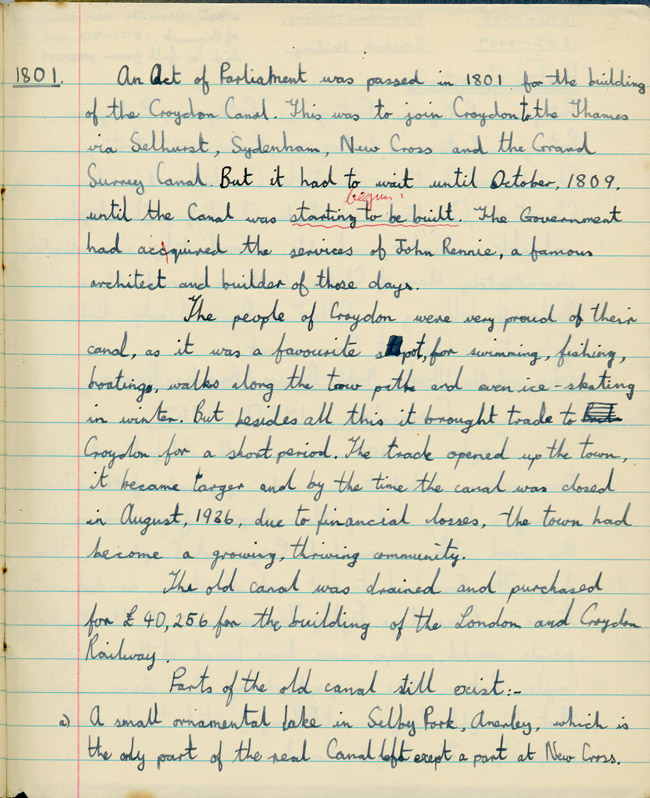 1801. An Act of Parliament was passed in 1801 for the building
of the Croydon Canal. This was to join Croydon to the Thames
via Selhurst, Sydenham, New Cross and the Grand
Surrey Canal. But it had to wait until October, 1809,
begun!
until the Canal was starting to be built. The Government
had acquired the services of John Rennie, a famous
architect and builder of those days.
The people of Croydon were very proud of their
canal, as it was a favourite spot, for swimming, fishing,
boating, walks along the tow path and even ice-skating
in winter. But besides all this it brought trade to
Croydon for a short period. The track opened up the town,
it became larger and by the time the canal was closed
in August, 1936, due to financial losses, the town had
become a growing, thriving community.
The old canal was drained and purchased
for £40,256 for the building of the London and Croydon
Railway.
Parts of the old canal still exist:-
a) A small ornamental lake in Selby Park, Anerley, which is
the only part of the real Canal left exept a part at New Cross.